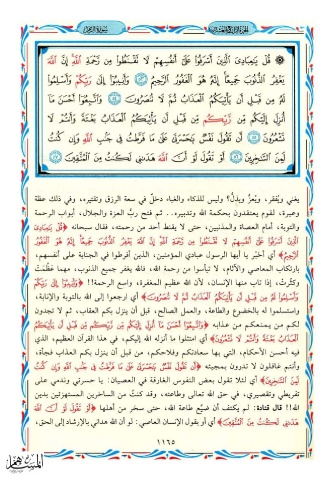 سورة الزمر
۞ قُلْ يَٰعِبَادِىَ ٱلَّذِينَ أَسْرَفُوا۟ عَلَىٰٓ أَنفُسِهِمْ لَا تَقْنَطُوا۟ مِن رَّحْمَةِ ٱللَّهِ إِنَّ ٱللَّهَ
يَغْفِرُ ٱلذُّنُوبَ جَمِيعًا إِنَّهُۥ هُوَ ٱلْغَفُورُ ٱلرَّحِيمُ ﴿٥٣﴾ وَأَنِيبُوٓا۟ إِلَىٰ رَبِّكُمْ وَأَسْلِمُوا۟
لَهُۥ مِن قَبْلِ أَن يَأْتِيَكُمُ ٱلْعَذَابُ ثُمَّ لَا تُنصَرُونَ ﴿٥٤﴾ وَٱتَّبِعُوٓا۟ أَحْسَنَ مَآ
أُنزِلَ إِلَيْكُم مِّن رَّبِّكُم مِّن قَبْلِ أَن يَأْتِيَكُمُ ٱلْعَذَابُ بَغْتَةً وَأَنتُمْ لَا
تَشْعُرُونَ ﴿٥٥﴾ أَن تَقُولَ نَفْسٌ يَٰحَسْرَتَىٰ عَلَىٰ مَا فَرَّطتُ فِى جَنۢبِ ٱللَّهِ وَإِن كُنتُ
لَمِنَ ٱلسَّٰخِرِينَ ﴿٥٦﴾ أَوْ تَقُولَ لَوْ أَنَّ ٱللَّهَ هَدَىٰنِى لَكُنتُ مِنَ ٱلْمُتَّقِينَ ﴿٥٧﴾
يغني ويُفقر، ويُعزُّ ويذلُّ؟ وليس للذكاء والغباء دخلٌ في سعة الرزق وتقتيره، وفي ذلك عظة
وعبرة، لقوم يعتقدون بحكمة الله وتدبيره.. ثم فتح ربُّ العزة والجلال، أبواب الرحمة
والتوبة، أمام العصاة والمذنبين، حتى لا يقنط أحد من رحمته، فقال سبحانه ﴿قُلْ يَا عِبَادِيَ
الَّذِينَ أَسْرَفُوا عَلَى أَنْفُسِهِمْ لَا تَقْنَطُوا مِنْ رَحْمَةِ اللَّهِ إِنَّ اللَّهَ يَغْفِرُ الذُّنُوبَ جَمِيعًا إِنَّهُ هُوَ الْغَفُورُ
الرَّحِيمُ﴾ أي أخبر يا أيها الرسول عبادي المؤمنين، الذين أفرطوا في الجناية على أنفسهم،
بارتكاب المعاصي والآثام، لا تيأسوا من رحمة الله، فالله يغفر جميع الذنوب، مهما عظُمَت
وكثُرت، إذا تاب منها الإنسان، لأن الله عظيم المغفرة، واسع الرحمة!! ﴿وَأَنِيبُوا إِلَى رَبِّكُمْ
وَأَسْلِمُوا لَهُ مِنْ قَبْلِ أَنْ يَأْتِيَكُمُ الْعَذَابُ ثُمَّ لَا تُنْصَرُونَ﴾ أي ارجعوا إلى الله بالتوبة والإنابة،
واستسلموا له بالخضوع والطاعة، والعمل الصالح، قبل أن ينزل بكم العقاب، ثم لا تجدون
لكم من يمنعكم من عذابه ﴿وَاتَّبِعُوا أَحْسَنَ مَا أُنْزِلَ إِلَيْكُمْ مِنْ رَبِّكُمْ مِنْ قَبْلِ أَنْ يَأْتِيَكُمُ
الْعَذَابُ بَغْتَةً وَأَنْتُمْ لَا تَشْعُرُونَ﴾ أي امتثلوا ما أنزله الله إليكم، في هذا القرآن العظيم، الذي
فيه أحسن الأحكام، التي بها سعادتكم وفلاحكم، من قبل أن ينزل بكم العذاب فجأة،
وأنتم غافلون لا تدرون بمجيئه ﴿أَنْ تَقُولَ نَفْسٌ يَا حَسْرَتَى عَلَى مَا فَرَّطْتُ فِي جَنْبِ اللَّهِ وَإِنْ كُنْتُ
لَمِنَ السَّاخِرِينَ﴾ أي لئلا تقول بعض النفوس الغارقة في العصيان: يا حسرتي وندمي على
تفريطي وتقصيري، في حق الله تعالى وطاعته، وقد كنت من الساخرين المستهزئين بدين
الله!! قال قتادة: لم يكتف أن ضيَّع طاعة الله، حتى سخر من أهلها ﴿أَوْ تَقُولَ لَوْ أَنَّ اللَّهَ
هَدَانِي لَكُنْتُ مِنَ الْمُتَّقِينَ﴾ أي أو يقول الإنسان العاصي: لو أن الله هداني بالإرشاد إلى الحق،
١١٦٥